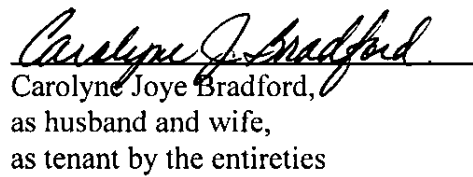 Carolyne J. Bradford
Carolyne Joye Bradford,
as husband and wife,
as tenant by the entireties